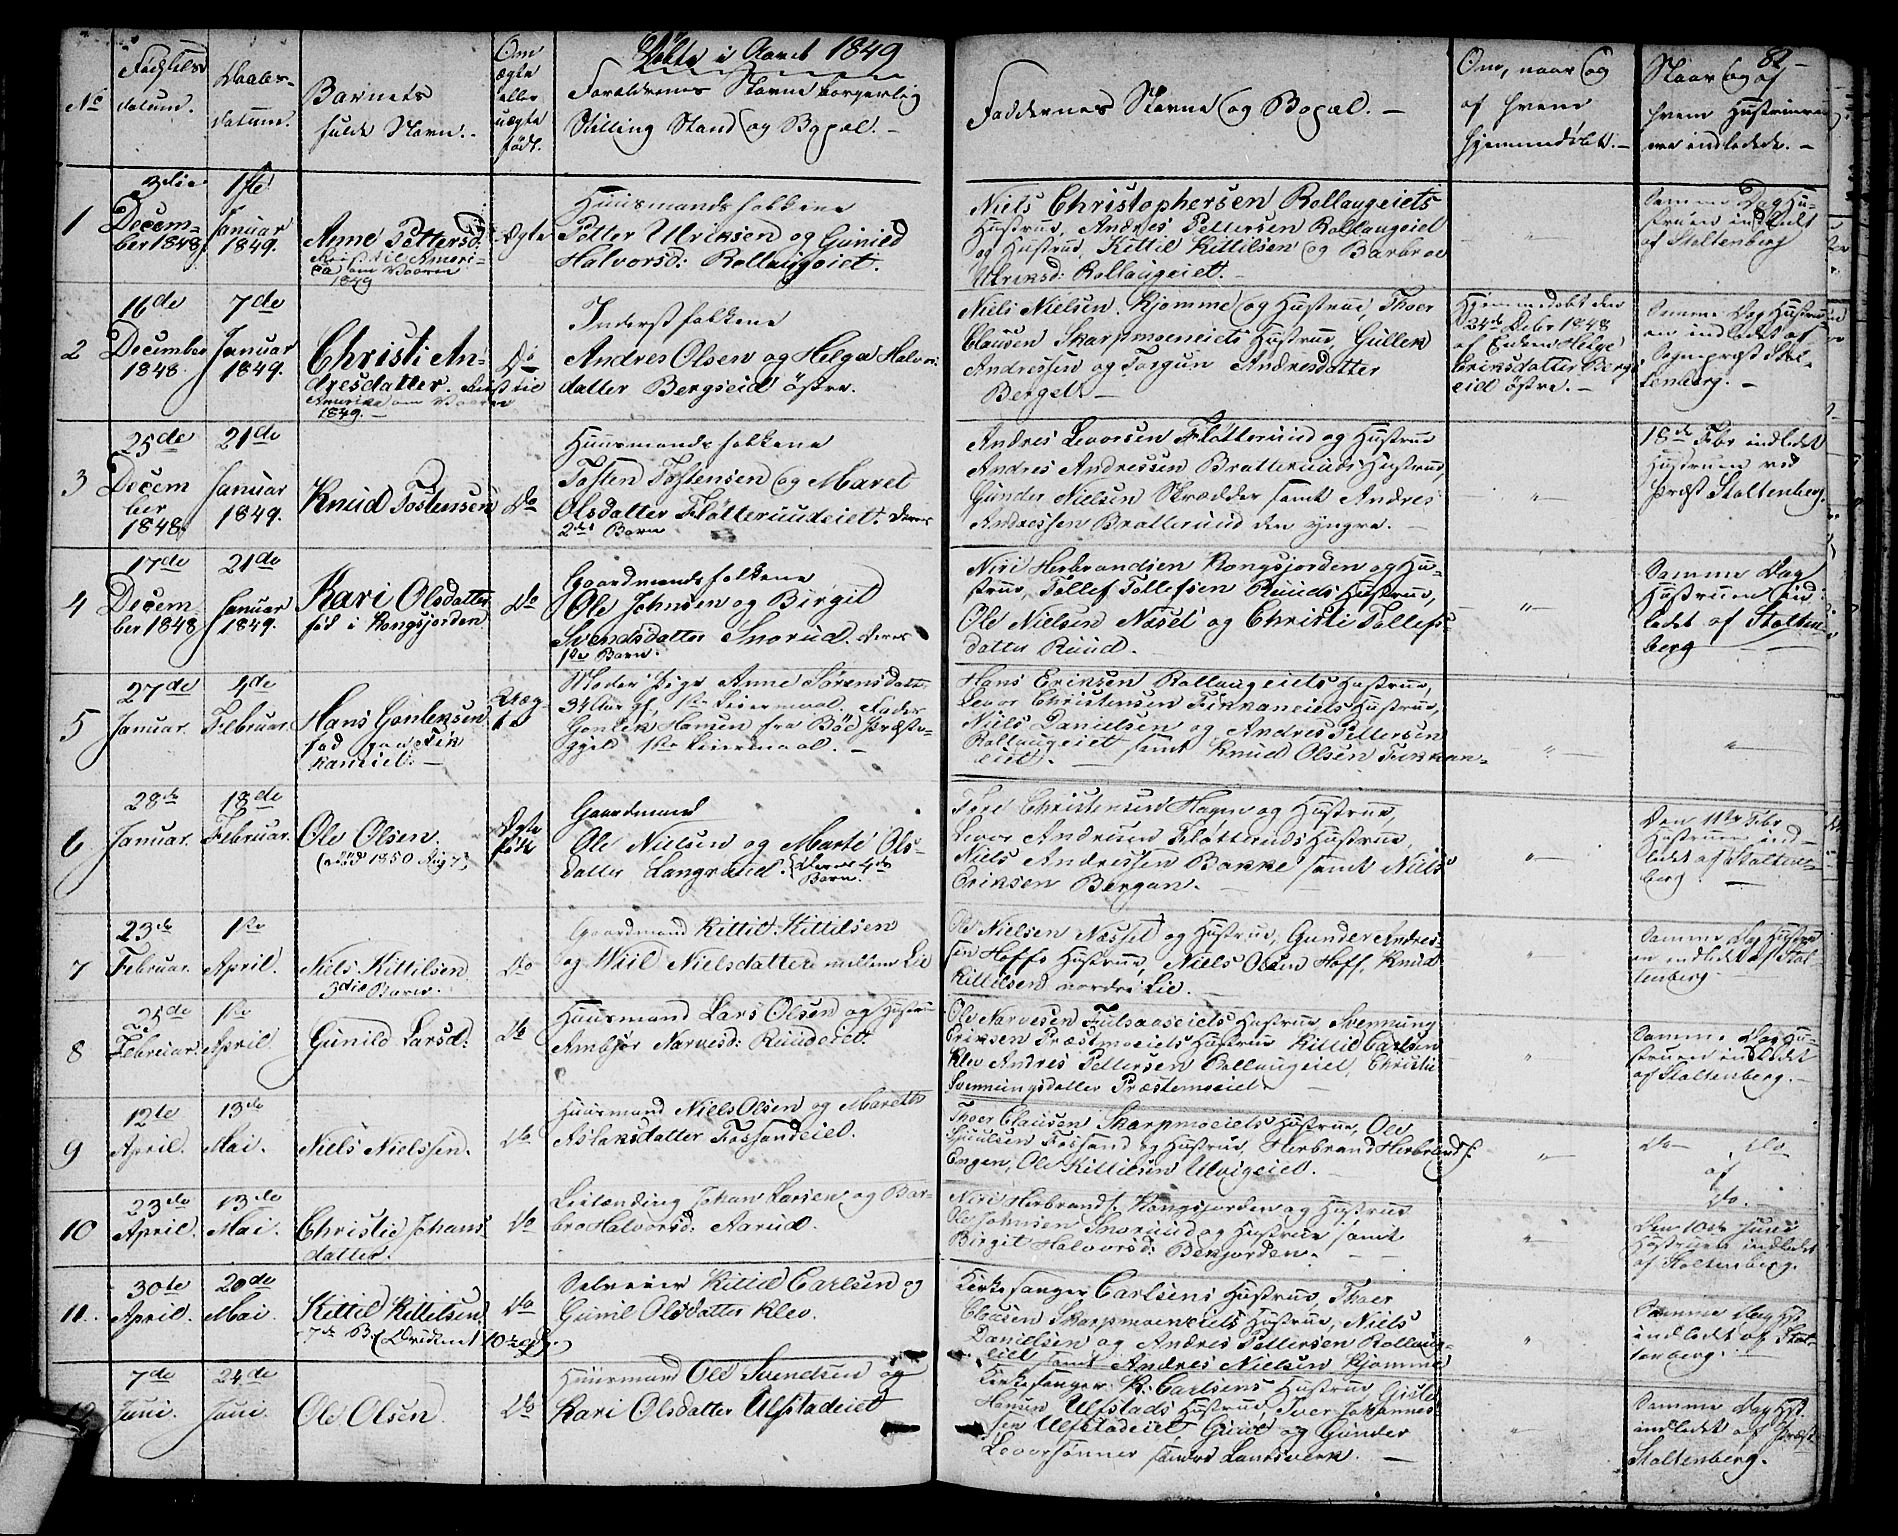 Døbte i Aaret 1849
82
No
Fødsels datum.
Daabs- datum.
Barnets fulde Navn.
Om ægte eller uægte født.
Forældrenes Navne borgerlig Stilling Stand og Bopæl. —
Faddernes Navne og Bopæl. —
Om, naar og af hvem hjemmedøbt. —
Naar og af hvem Hustruen er indledede. —
1
3die December 1848
1ste Januar 1849.
Anne Pettersd:
Reist til Ameri-
ca om Vaaren
1849
Ægte
Huusmandsfolkene
Petter Ulriksen og Gunild
Halvorsd: Rollaugeiet.
Niels Christophersen Rollaugeiets
Hustrue, Andres Pettersen Rollaugeiet
og Hustrue, Kittil Kittilsen og Barbroe
Ulriksd: Rollaugeiet. —
Samme Dag Hu-
struen indledt
af Stoltenberg
2
16de December 1848.
7de Januar 1849.
Christi An-
dresdatter. Reist til
Amerika om Vaaren
1849. —
Do
Inderstfolkene
Andres Olsen og Helge Halvors
datter Bergseid østre.
Niels Nielsen Kjomme og Hustrue, Thoer
Clausen Skarpmoeneiets Hustrue, Gullek
Andressen og Torgun Andresdatter
Berget. —
Hjemmedøbt den
24de Debr 1848
af Enken Helge
Eriksdatter Berg-
seid østre. —
Samme Dag Hustruen
en indledet af
Sognepræst Stol-
tenberg. —
3
25de December 1848.
21de Januar 1849.
Knud Tostensen
Do
Huusmandsfolkene
Tosten Tostensen og Maret
Olsdatter Fløtteruudeiet. Deres
2det Barn
Andres Levorsen Fløtteruud og Hustrue
Andres Andressen Bratteruuds Hustrue,
Gunder Nielsen Skrædder samt Andres
Andressen Bratteruud den yngre. —
18de Febr indledet
Hustruen ved
Præst Stoltenberg.
4
17de December 1848
21de Januar 1849.
Kari Olsdatter
fød i Kongsjorden
Do
Gaardmandsfolkene
Ole Johnsen og Birgit
Svendsdatter Snorud. Deres
1ste Barn.
Niri Herbrandsen Kongsjorden og Hu-
strue, Tollef Tollefsen Ruuds Hustrue,
Ole Nielsen Næsel og Christi Tollefs
datter Ruud.
Samme Dag
Hustruen ind
ledet af Stolten-
berg
5
27de Januar.
4de Februar.
Hans Gonleksen
fød paa Fik
kaneiet. —
Uæg-
te
Moder Pige Anne Sørensdatt.
34 Aar gl, 1ste Leiermaal. Fader
Gonlek Hansen fra Bøe Præste-
gjeld 1ste Leiermaal. —
Hans Eriksen Rollaugeiets Hustrue,
Levor Christensen Fikkaneiets Hustrue,
Niels Danielsen og Andres Pettersen
Rollaugeiet samt Knud Olsen Fikkan-
eiet. —
6
28de Januar.
18de Februar.
Ole Olsen.
(død 1850 Aug 7)
Ægte
født
Gaardmand
Ole Nielsen og Marte Ols-
datter Langrund. (Deres 4de
Barn.
Tore Christensen Hagen og Hustrue,
Levor Andresen Fløtteruds Hustrue,
Niels Andressen Bakke samt Niels
Eriksen Bergan. —
Den 11te Febr
Hustruen ind-
ledet af Stolten-
berg. —
7
23de Februar.
1ste April.
Niels Kittilsen
3die Barn.
Do
Gaardmand Kittil Kittilsen
og Wiil Nielsdatter mellem Lie
Ole Nielsen Næssel og Hustrue, Gunder Andres-
sen Hoffs Hustrue, Niels Olsen Hoff, Knud
Kittilsen nordre Lie. —
Samme Dag Hustru
en indledet af Stol-
tenberg. —
8
25de Februar.
1ste April
Gunild Larsd:
Do
Huusmand Lars Olsen og Hustru
Ambjør Narvesd: Ruudeiet.
Ole Narvesen Fulsaaseiets Hustrue, Svennung
Eriksen Præstmoeiets Hustrue Kittil Carlsen
Klev Andres Pettersen Rollaugeiet, Christi
Svennungsdatter Præstemoeiet
Samme Dag Hu-
struen indledet
af Stoltenberg. —
9
12te April.
13de Mai.
Niels Nielssen.
Do.
Huusmand Niels Olsen og Marethe
Aslaksdatter Fossandeiet.
Thoer Clausen Skarpmoeiets Hustrue, Ole
Sjuulsen Fossand og Hustrue, Herbrand Herbrands.
Engen, Ole Kittilsen Ulvigeiet. —
Do — Do
af
Do.
10
23de April.
13de Mai.
Christie Johans
datter.
Do
Leilænding Johan Larsen og Bar-
bro Halvorsd: Aarud.
Niri Herbrands. Kongsjorden og Hustrue
Ole Johnsen Snoruud og Hustrue samt
Birgit Halvorsd: Benjorden. —
Den 10de Juni
Hustruen indledet
af Stoltenberg.
11.
30te April.
20de Mai.
Kittil Kittilsen.
7de B.
Do
Selveier Kittil Carlsen og
Gunil Olsdatter Klev.
Kirkesanger Carlsens Hustrue, Thoer
Clausen Skarpmoeneiets Hustrue, Niels
Danielsen og Andres Pettersen Rollaug-
eiet samt Andres Nielsen Kjomme
Samme Dag Hs
indledet af Stol-
tenberg. —
12
7de Juni.
24de Juni.
Ole Olsen
Do
Huusmand Ole Svendsen og
Kari Olsdatter Ulfstadeiet
Kirkesanger K: Carlsens Hustrue, Gisle
Hansen Ulfstads Hustrue, Iver Johannes-
sen Ulfstadeiet Guut og Gunder
Levorsønner søndre Lauvsverk. —
Samme Dag Hst.
indledet af Præst
Stoltenberg.